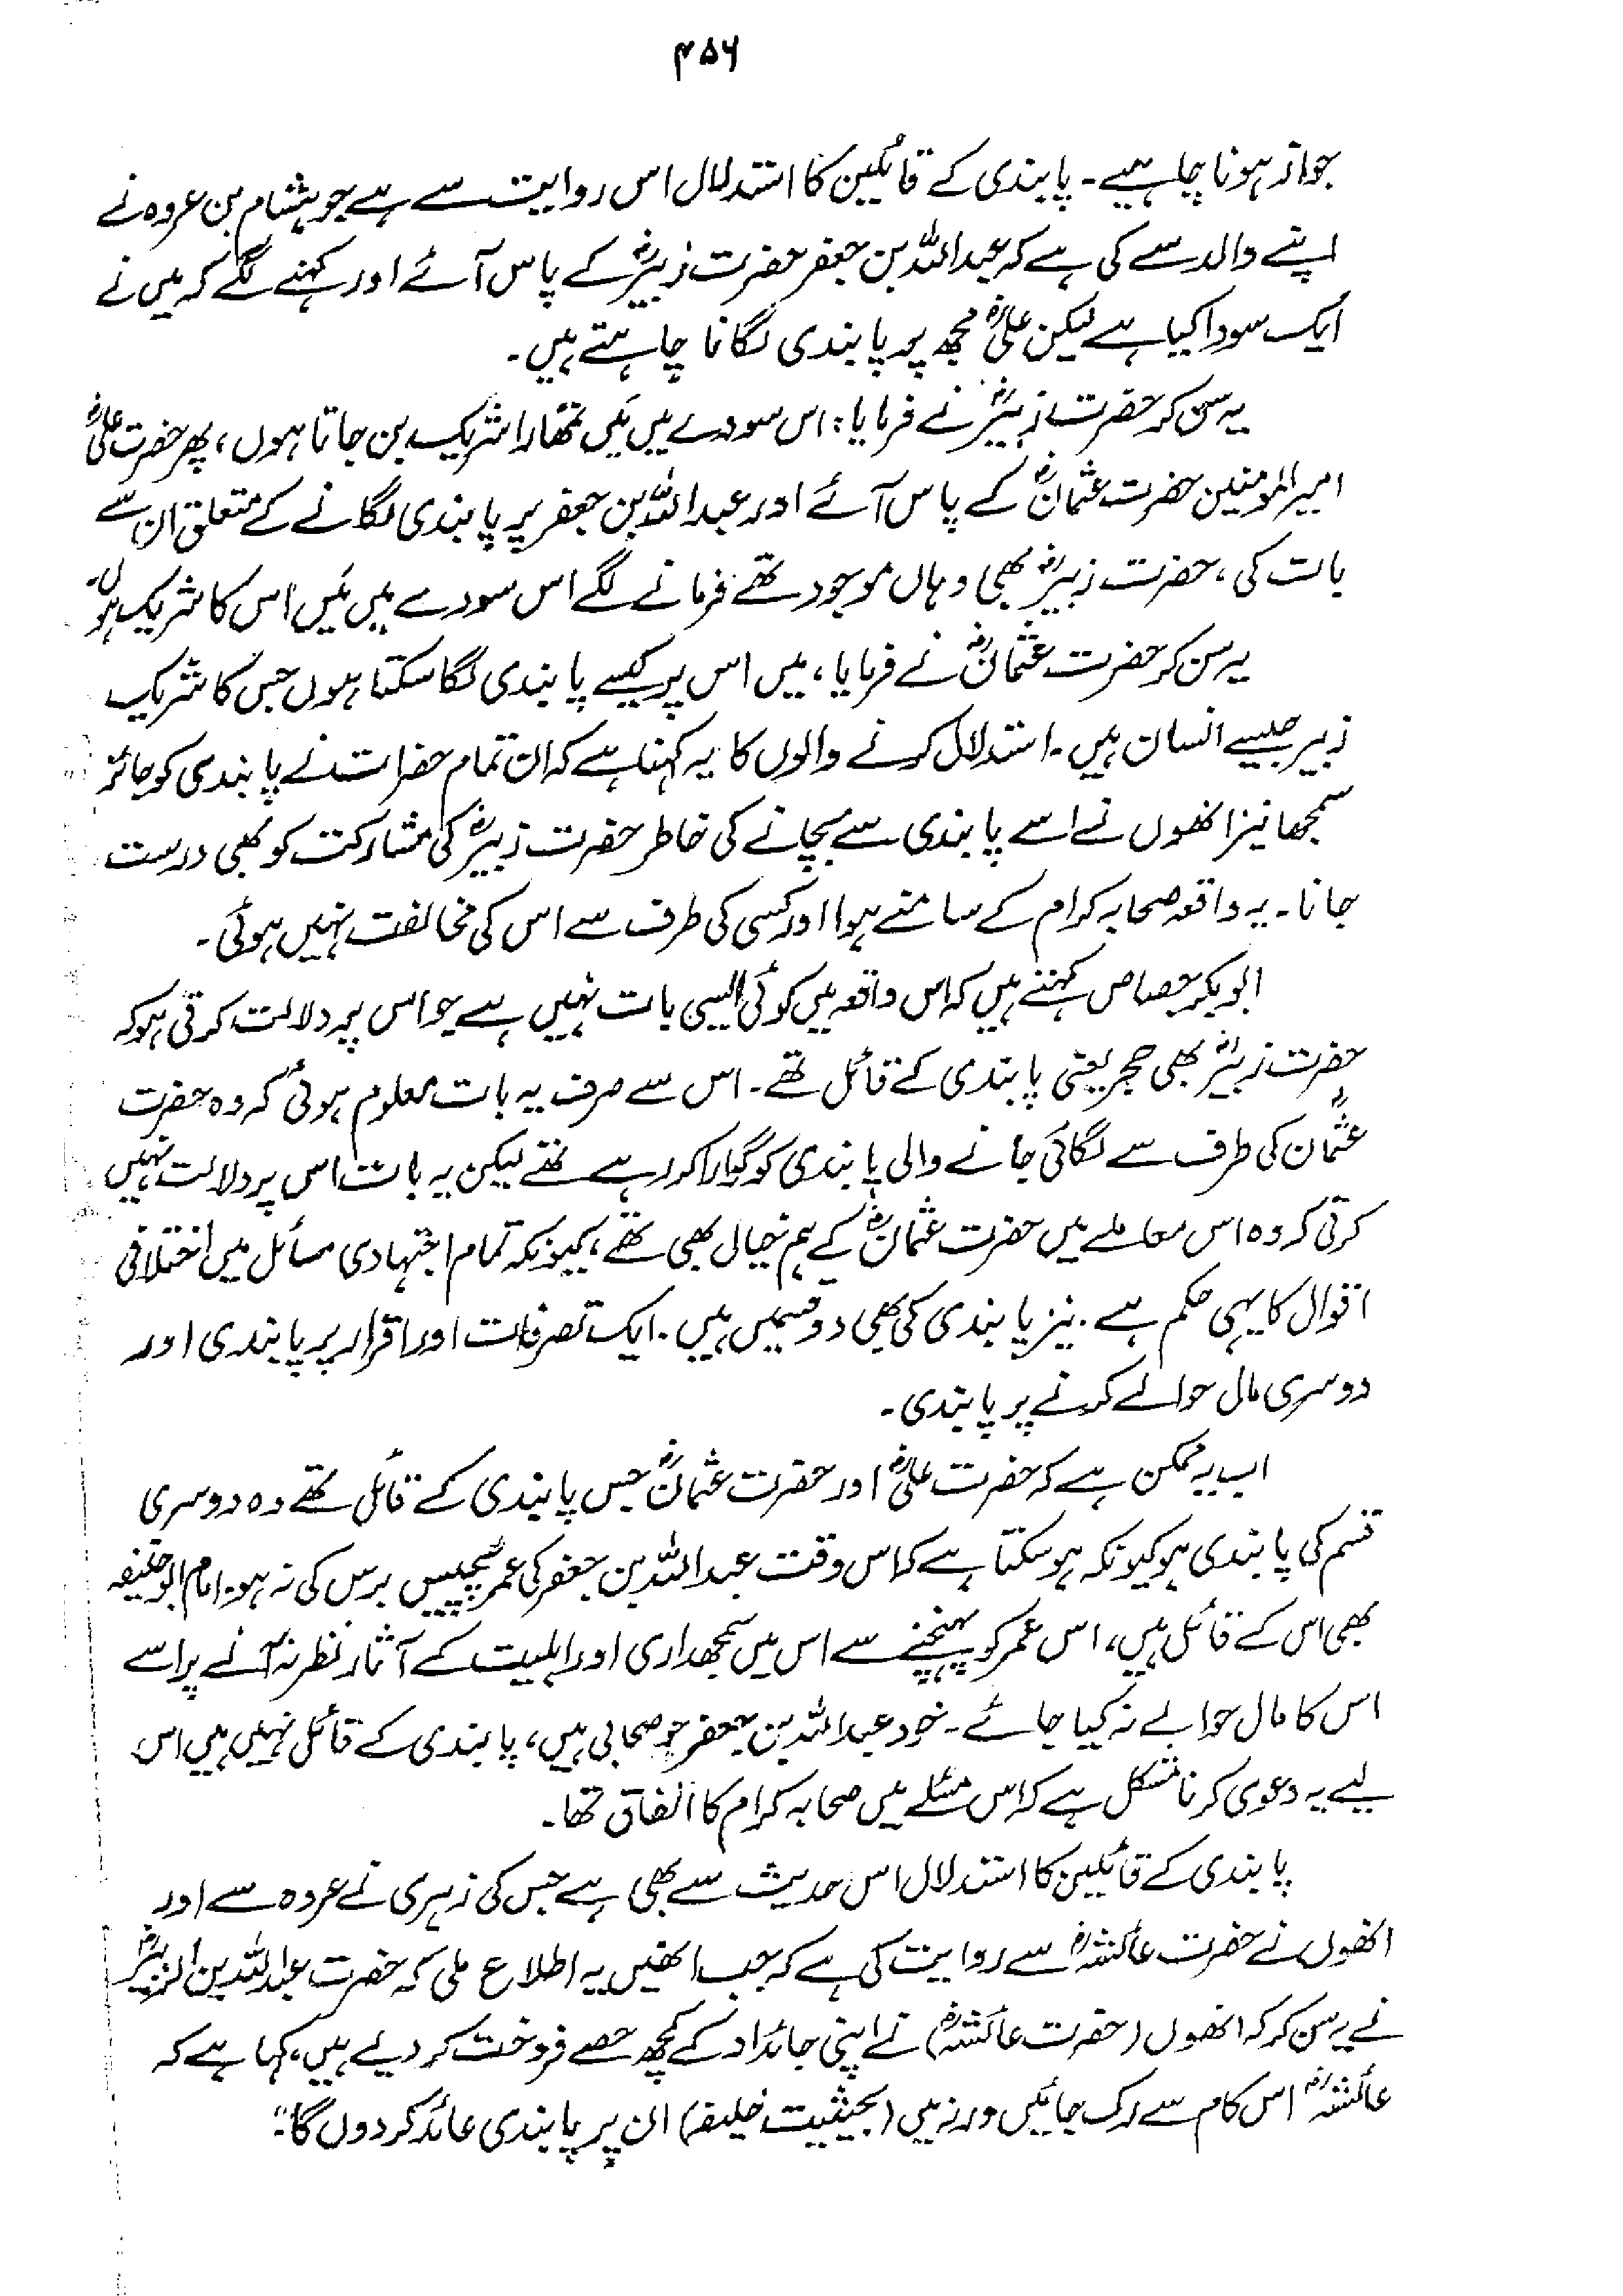 ۴۵۶
جواز ہونا چاہیے۔ پابندی کے قائلین کا استدلال اس روایت سے ہے جو ہشام بن عروہ نے
اپنے والد سے کی ہے کہ عبداللہ بن جعفر حضرت زبیرؓ کے پاس آئے اور کہنے لگے کہ میں نے
ایک سودا کیا ہے لیکن علیؓ مجھ پر پابندی لگانا چاہتے ہیں۔
یہ سن کر حضرت زبیرؓ نے فرمایا: اس سودے میں میں تمھارا شریک بن جاتا ہوں، پھر حضرت علیؓ
امیر المومنین حضرت عثمانؓ کے پاس آئے اور عبداللہ بن جعفر پر پابندی لگانے کے متعلق ان سے
بات کی، حضرت زبیرؓ بھی وہاں موجود تھے فرمانے لگے اس سودے میں میں اس کا شریک ہوں۔
یہ سن کر حضرت عثمانؓ نے فرمایا، میں اس پر کیسے پابندی لگا سکتا ہوں جس کا شریک
زبیر جیسے انسان ہیں۔ استدلال کرنے والوں کا یہ کہنا ہے کہ ان تمام حضرات نے پابندی کو جائز
سمجھا نیز انھوں نے اسے پابندی سے بچانے کی خاطر حضرت زبیرؓ کی مشارکت کو بھی درست
جانا۔ یہ واقعہ صحابہ کرام کے سامنے ہوا اور کسی کی طرف سے اس کی مخالفت نہیں ہوئی۔
ابوبکر جصاص کہتے ہیں کہ اس واقعہ میں کوئی ایسی بات نہیں ہے جو اس پر دلالت کرتی ہو کہ
حضرت زبیرؓ بھی حجر یعنی پابندی کے قائل تھے۔ اس سے صرف یہ بات معلوم ہوئی کہ وہ حضرت
عثمانؓ کی طرف سے لگائی جانے والی پابندی کو گوارا کر رہے تھے لیکن یہ بات اس پر دلالت نہیں
کرتی کہ وہ اس معاملے میں حضرت عثمانؓ کے ہم خیال بھی تھے، کیونکہ تمام اجتہادی مسائل میں اختلافی
اقوال کا یہی حکم ہے۔ نیز پابندی کی بھی دو قسمیں ہیں۔ ایک تصرفات اور اقرار پر پابندی اور
دوسری مال حوالے کرنے پر پابندی۔
اب یہ ممکن ہے کہ حضرت علیؓ اور حضرت عثمانؓ جس پابندی کے قائل تھے وہ دوسری
قسم کی پابندی ہو کیونکہ ہو سکتا ہے کہ اس وقت عبداللہ بن جعفر کی عمر پچیس برس کی نہ ہو۔ امام ابوحنیفہ
بھی اس کے قائل ہیں، اس عمر کو پہنچنے سے اس میں سمجھداری اور اہلیت کے آثار نظر نہ آنے پر اسے
اس کا مال حوالے نہ کیا جائے۔ خود عبداللہ بن جعفر جو صحابی ہیں، پابندی کے قائل نہیں ہیں اس
لیے یہ دعویٰ کرنا مشکل ہے کہ اس مسئلے میں صحابہ کرام کا اتفاق تھا۔
پابندی کے قائلین کا استدلال اس حدیث سے بھی ہے جس کی زہری نے عروہ سے اور
انھوں نے حضرت عائشہؓ سے روایت کی ہے کہ جب انھیں یہ اطلاع ملی کہ حضرت عبداللہ بن الزبیرؓ
نے یہ سن کر کہ انھوں (حضرت عائشہؓ) نے اپنی جائداد کے کچھ حصے فروخت کر دیے ہیں، کہا ہے کہ
عائشہؓ اس کام سے رک جائیں ورنہ میں (بحیثیت خلیفہ) ان پر پابندی عائد کر دوں گا"۔